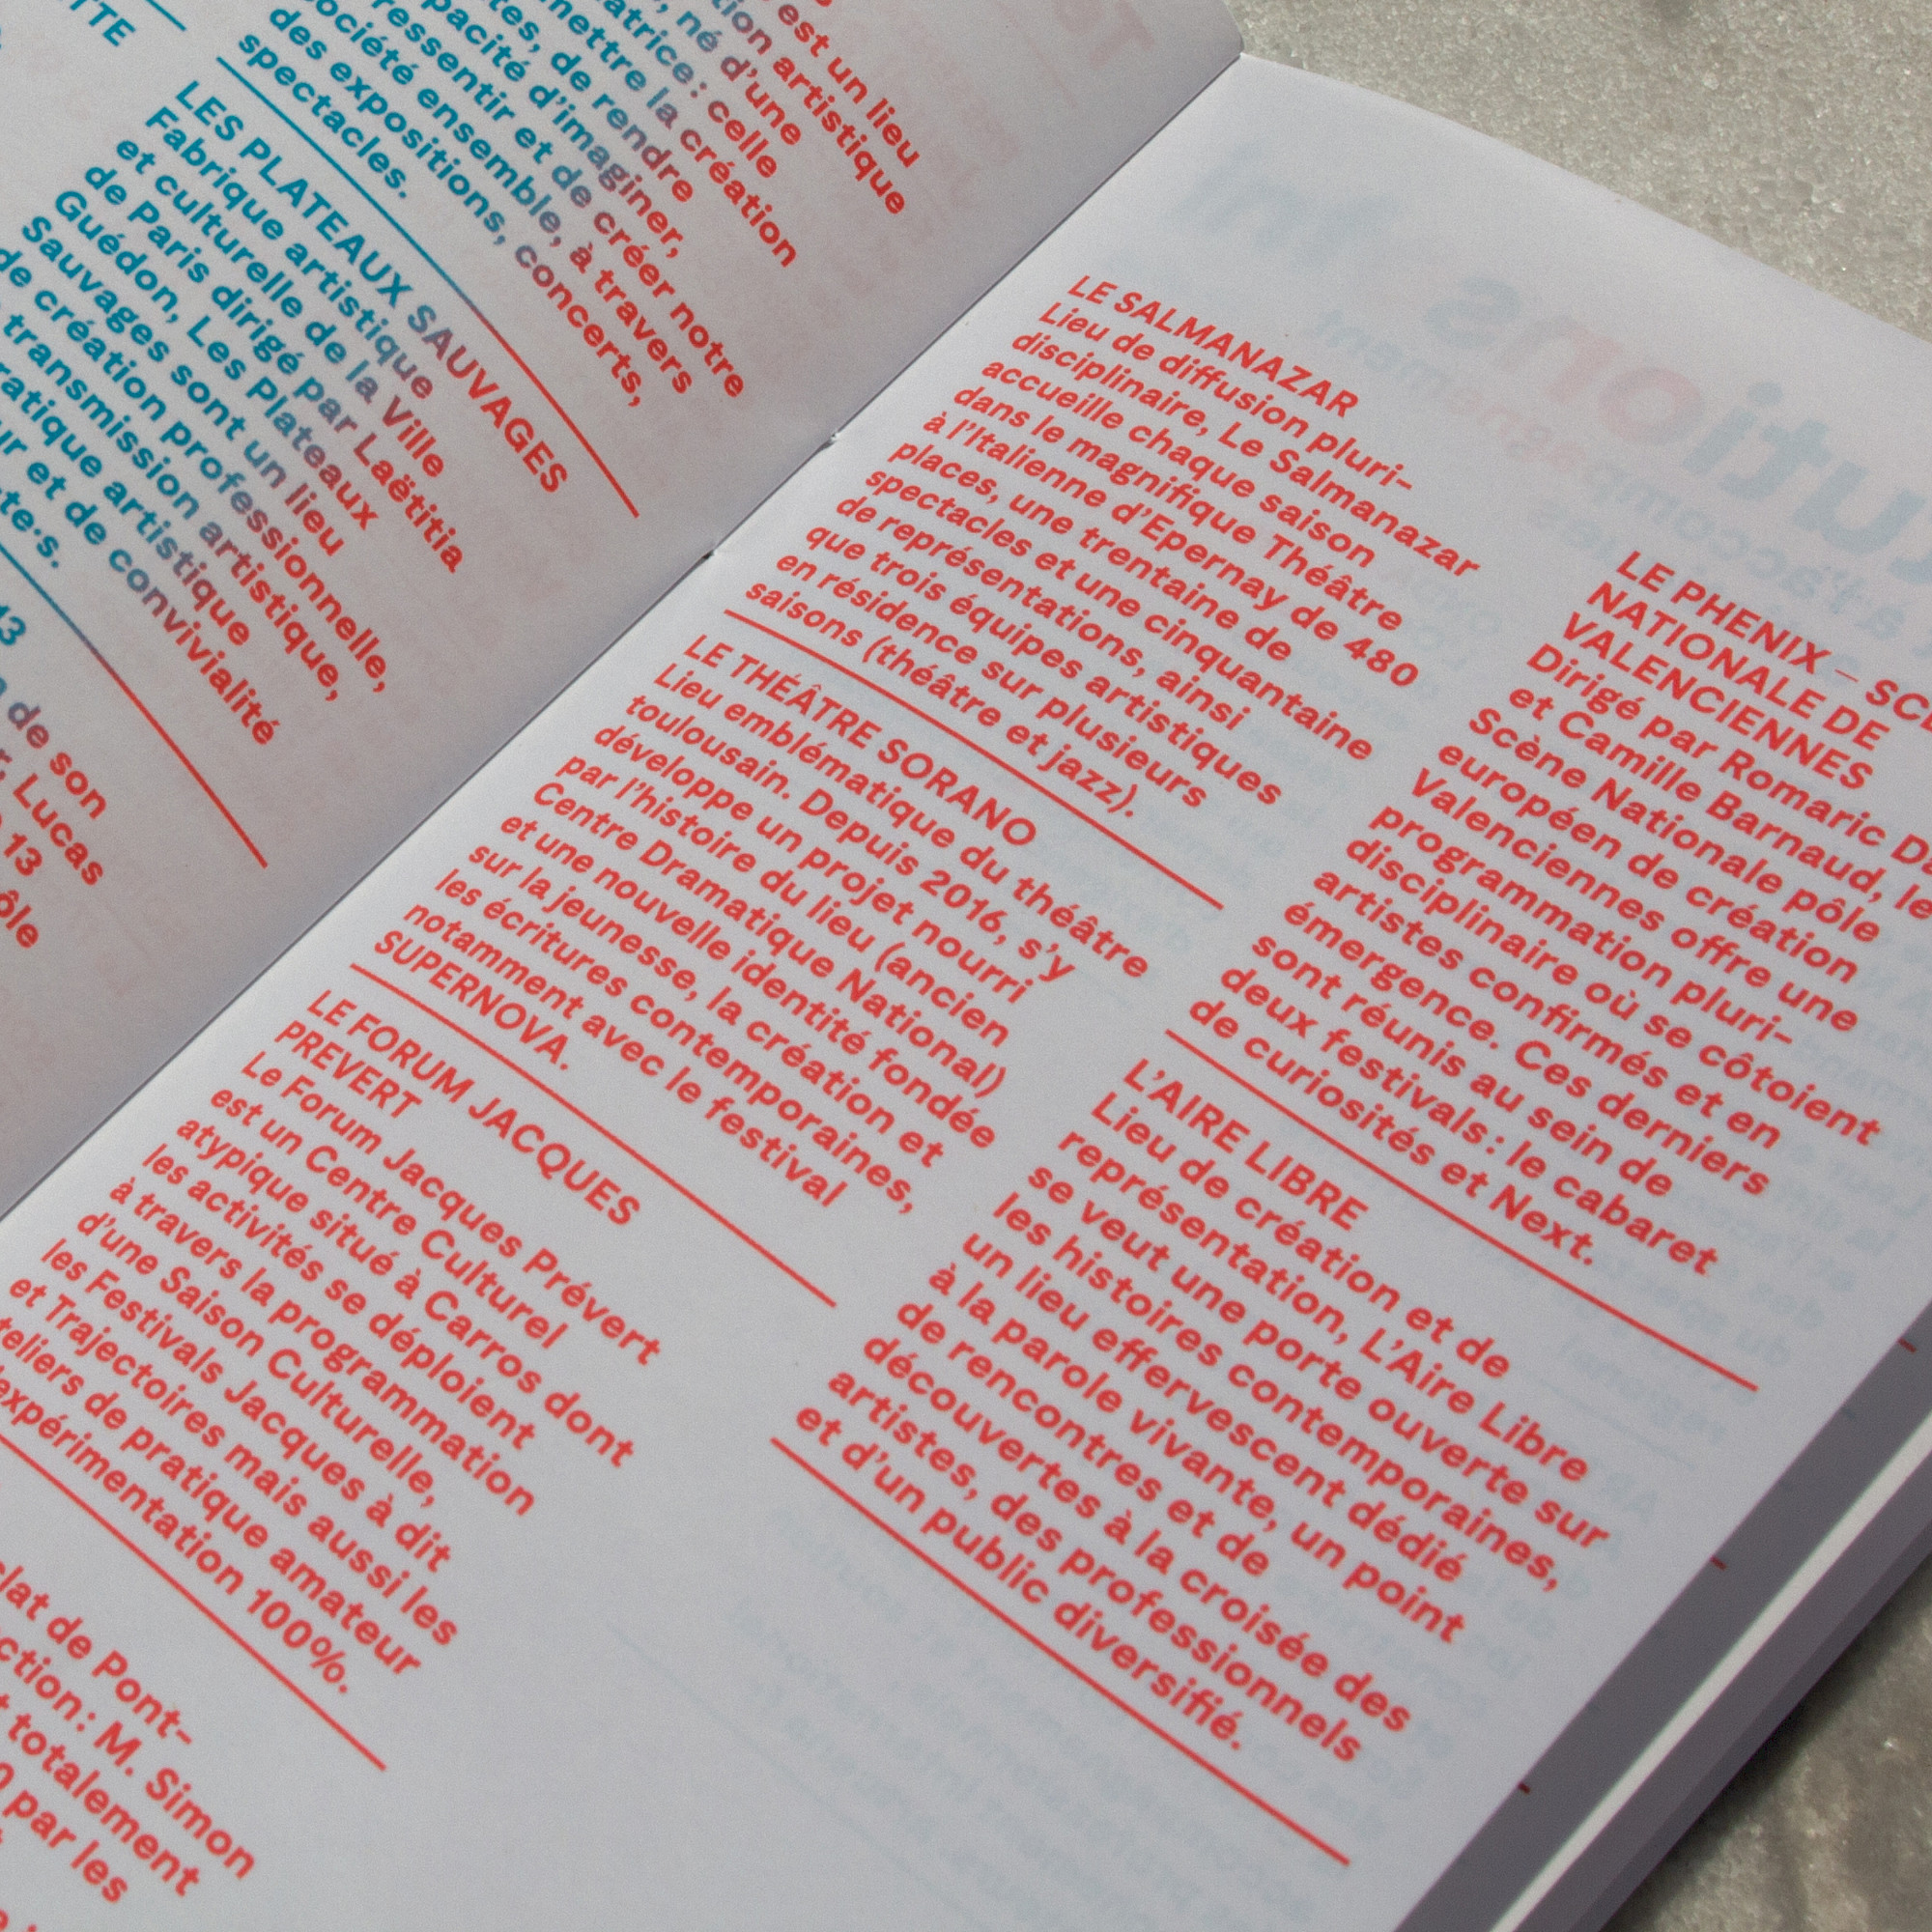 TTE
est un lieu
tion artistique
né d'une
atrice : celle
mettre la création
tes, de rendre
pacité d'imaginer,
ressentir et de créer notre
société ensemble, à travers
des expositions, concerts,
spectacles.
LES PLATEAUX SAUVAGES
Fabrique artistique
et culturelle de la Ville
de Paris dirigé par Laëtitia
Guédon, Les Plateaux
Sauvages sont un lieu
de création professionnelle,
transmission artistique,
pratique artistique
ur et de convivialité
te·s.
13
de son
Lucas
13
ôle
LE SALMANAZAR
Lieu de diffusion pluri-
disciplinaire, Le Salmanazar
accueille chaque saison
dans le magnifique Théâtre
à l'Italienne d'Epernay de 480
places, une trentaine de
spectacles et une cinquantaine
de représentations, ainsi
que trois équipes artistiques
en résidence sur plusieurs
saisons (théâtre et jazz).
LE THÉÂTRE SORANO
Lieu emblématique du théâtre
toulousain. Depuis 2016, s'y
développe un projet nourri
par l'histoire du lieu (ancien
Centre Dramatique National)
et une nouvelle identité fondée
sur la jeunesse, la création et
les écritures contemporaines,
notamment avec le festival
SUPERNOVA.
LE FORUM JACQUES
PREVERT
Le Forum Jacques Prévert
est un Centre Culturel
atypique situé à Carros dont
les activités se déploient
à travers la programmation
d'une Saison Culturelle,
les Festivals Jacques à dit
et Trajectoires mais aussi les
teliers de pratique amateur
expérimentation 100%.
lat de Pont-
ction : M. Simon
totalement
par les
LE PHENIX – SC
NATIONALE DE
VALENCIENNES
Dirigé par Romaric D
et Camille Barnaud, le
Scène Nationale pôle
européen de création
Valenciennes offre une
programmation pluri-
disciplinaire où se côtoient
artistes confirmés et en
émergence. Ces derniers
sont réunis au sein de
deux festivals : le cabaret
de curiosités et Next.
L'AIRE LIBRE
Lieu de création et de
représentation, L'Aire Libre
se veut une porte ouverte sur
les histoires contemporaines,
un lieu effervescent dédié
à la parole vivante, un point
de rencontres et de
découvertes à la croisée des
artistes, des professionnels
et d'un public diversifié.